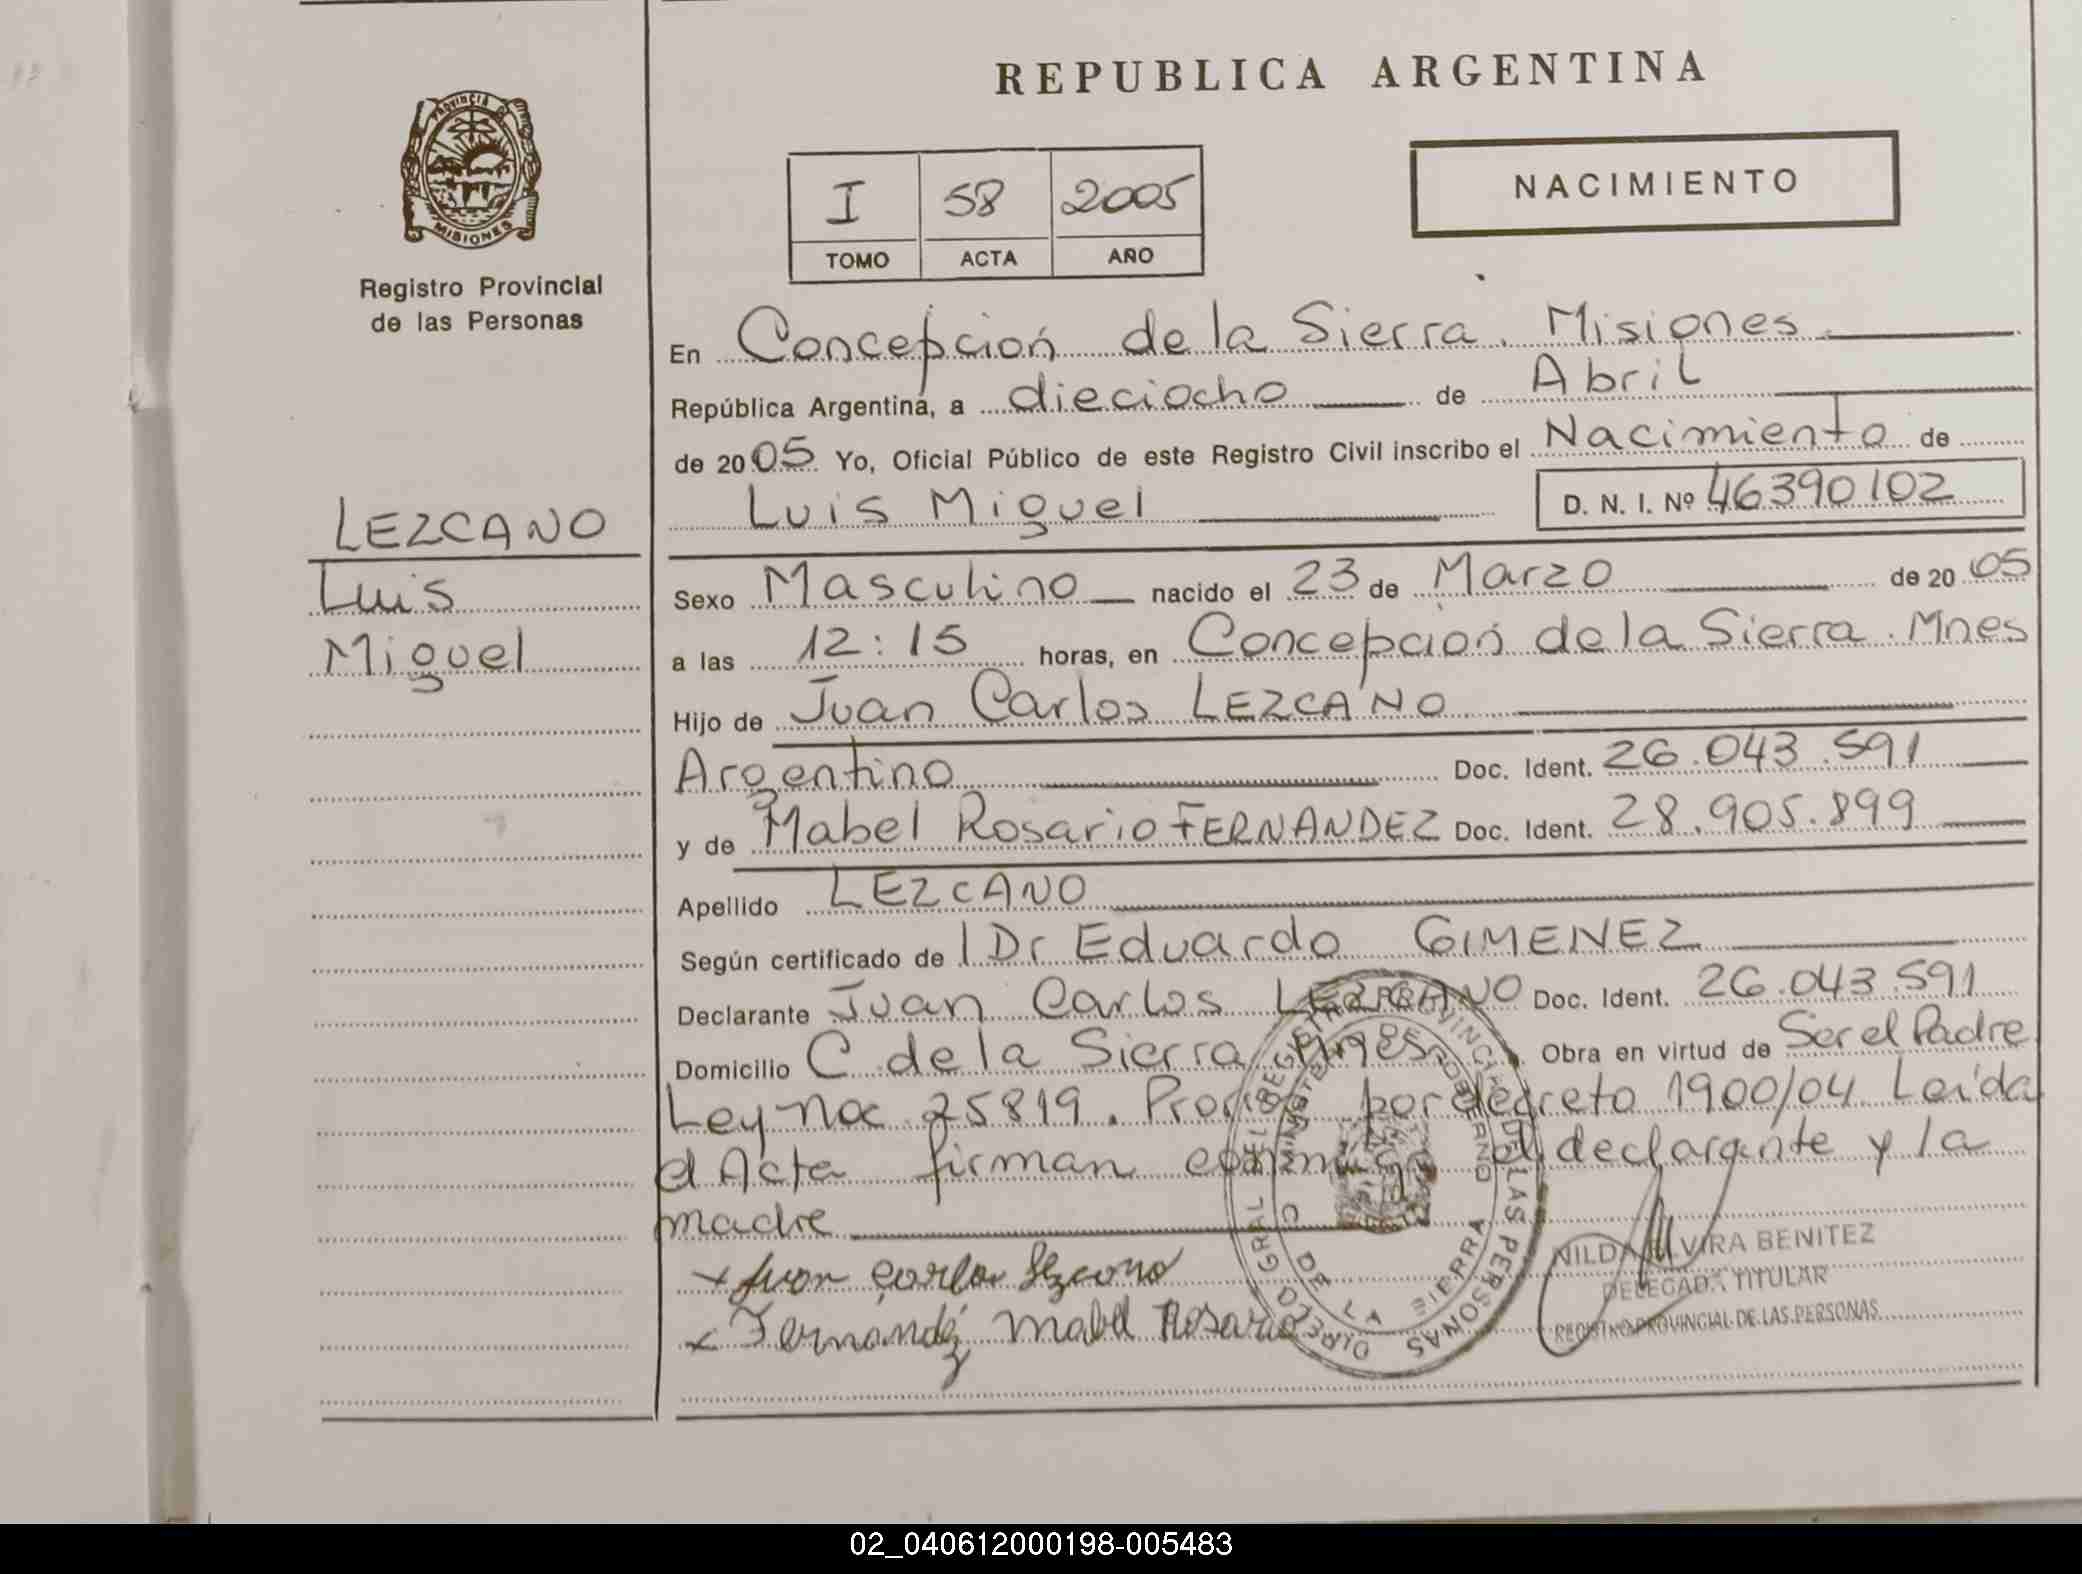 REPUBLICA ARGENTINA
PROVINCIA DE
MISIONES
Registro Provincial
de las Personas
I 58 2005
TOMO ACTA AÑO
NACIMIENTO
En Concepción de la Sierra. Misiones
República Argentina, a dieciocho de Abril
de 2005 Yo, Oficial Público de este Registro Civil inscribo el Nacimiento de
Luis Miguel D. N. I. Nº 46390102
LEZCANO
Luis
Miguel
Sexo Masculino nacido el 23 de Marzo de 2005
a las 12:15 horas, en Concepción de la Sierra. Mnes
Hijo de Juan Carlos LEZCANO
Argentino Doc. Ident. 26.043.591
y de Mabel Rosario FERNANDEZ Doc. Ident. 28.905.899
Apellido LEZCANO
Según certificado de l Dr Eduardo GIMENEZ
Declarante Juan Carlos LEZCANO Doc. Ident. 26.043.591
Domicilio C. de la Sierra Mnes Obra en virtud de Ser el Padre
Ley nac 25819. Prorrog por decreto 1900/04 Leída
el Acta firman conmigo el declarante y la
madre
x Juan Carlos Lezcano
x Fernandez Mabel Rosario
DIRECC. GRAL. DEL REGISTRO PROVINCIAL DE LAS PERSONAS
MINISTERIO DE GOBIERNO
C. DE LA SIERRA
NILDA ELVIRA BENITEZ
DELEGADA TITULAR
REGISTRO PROVINCIAL DE LAS PERSONAS
02_040612000198-005483